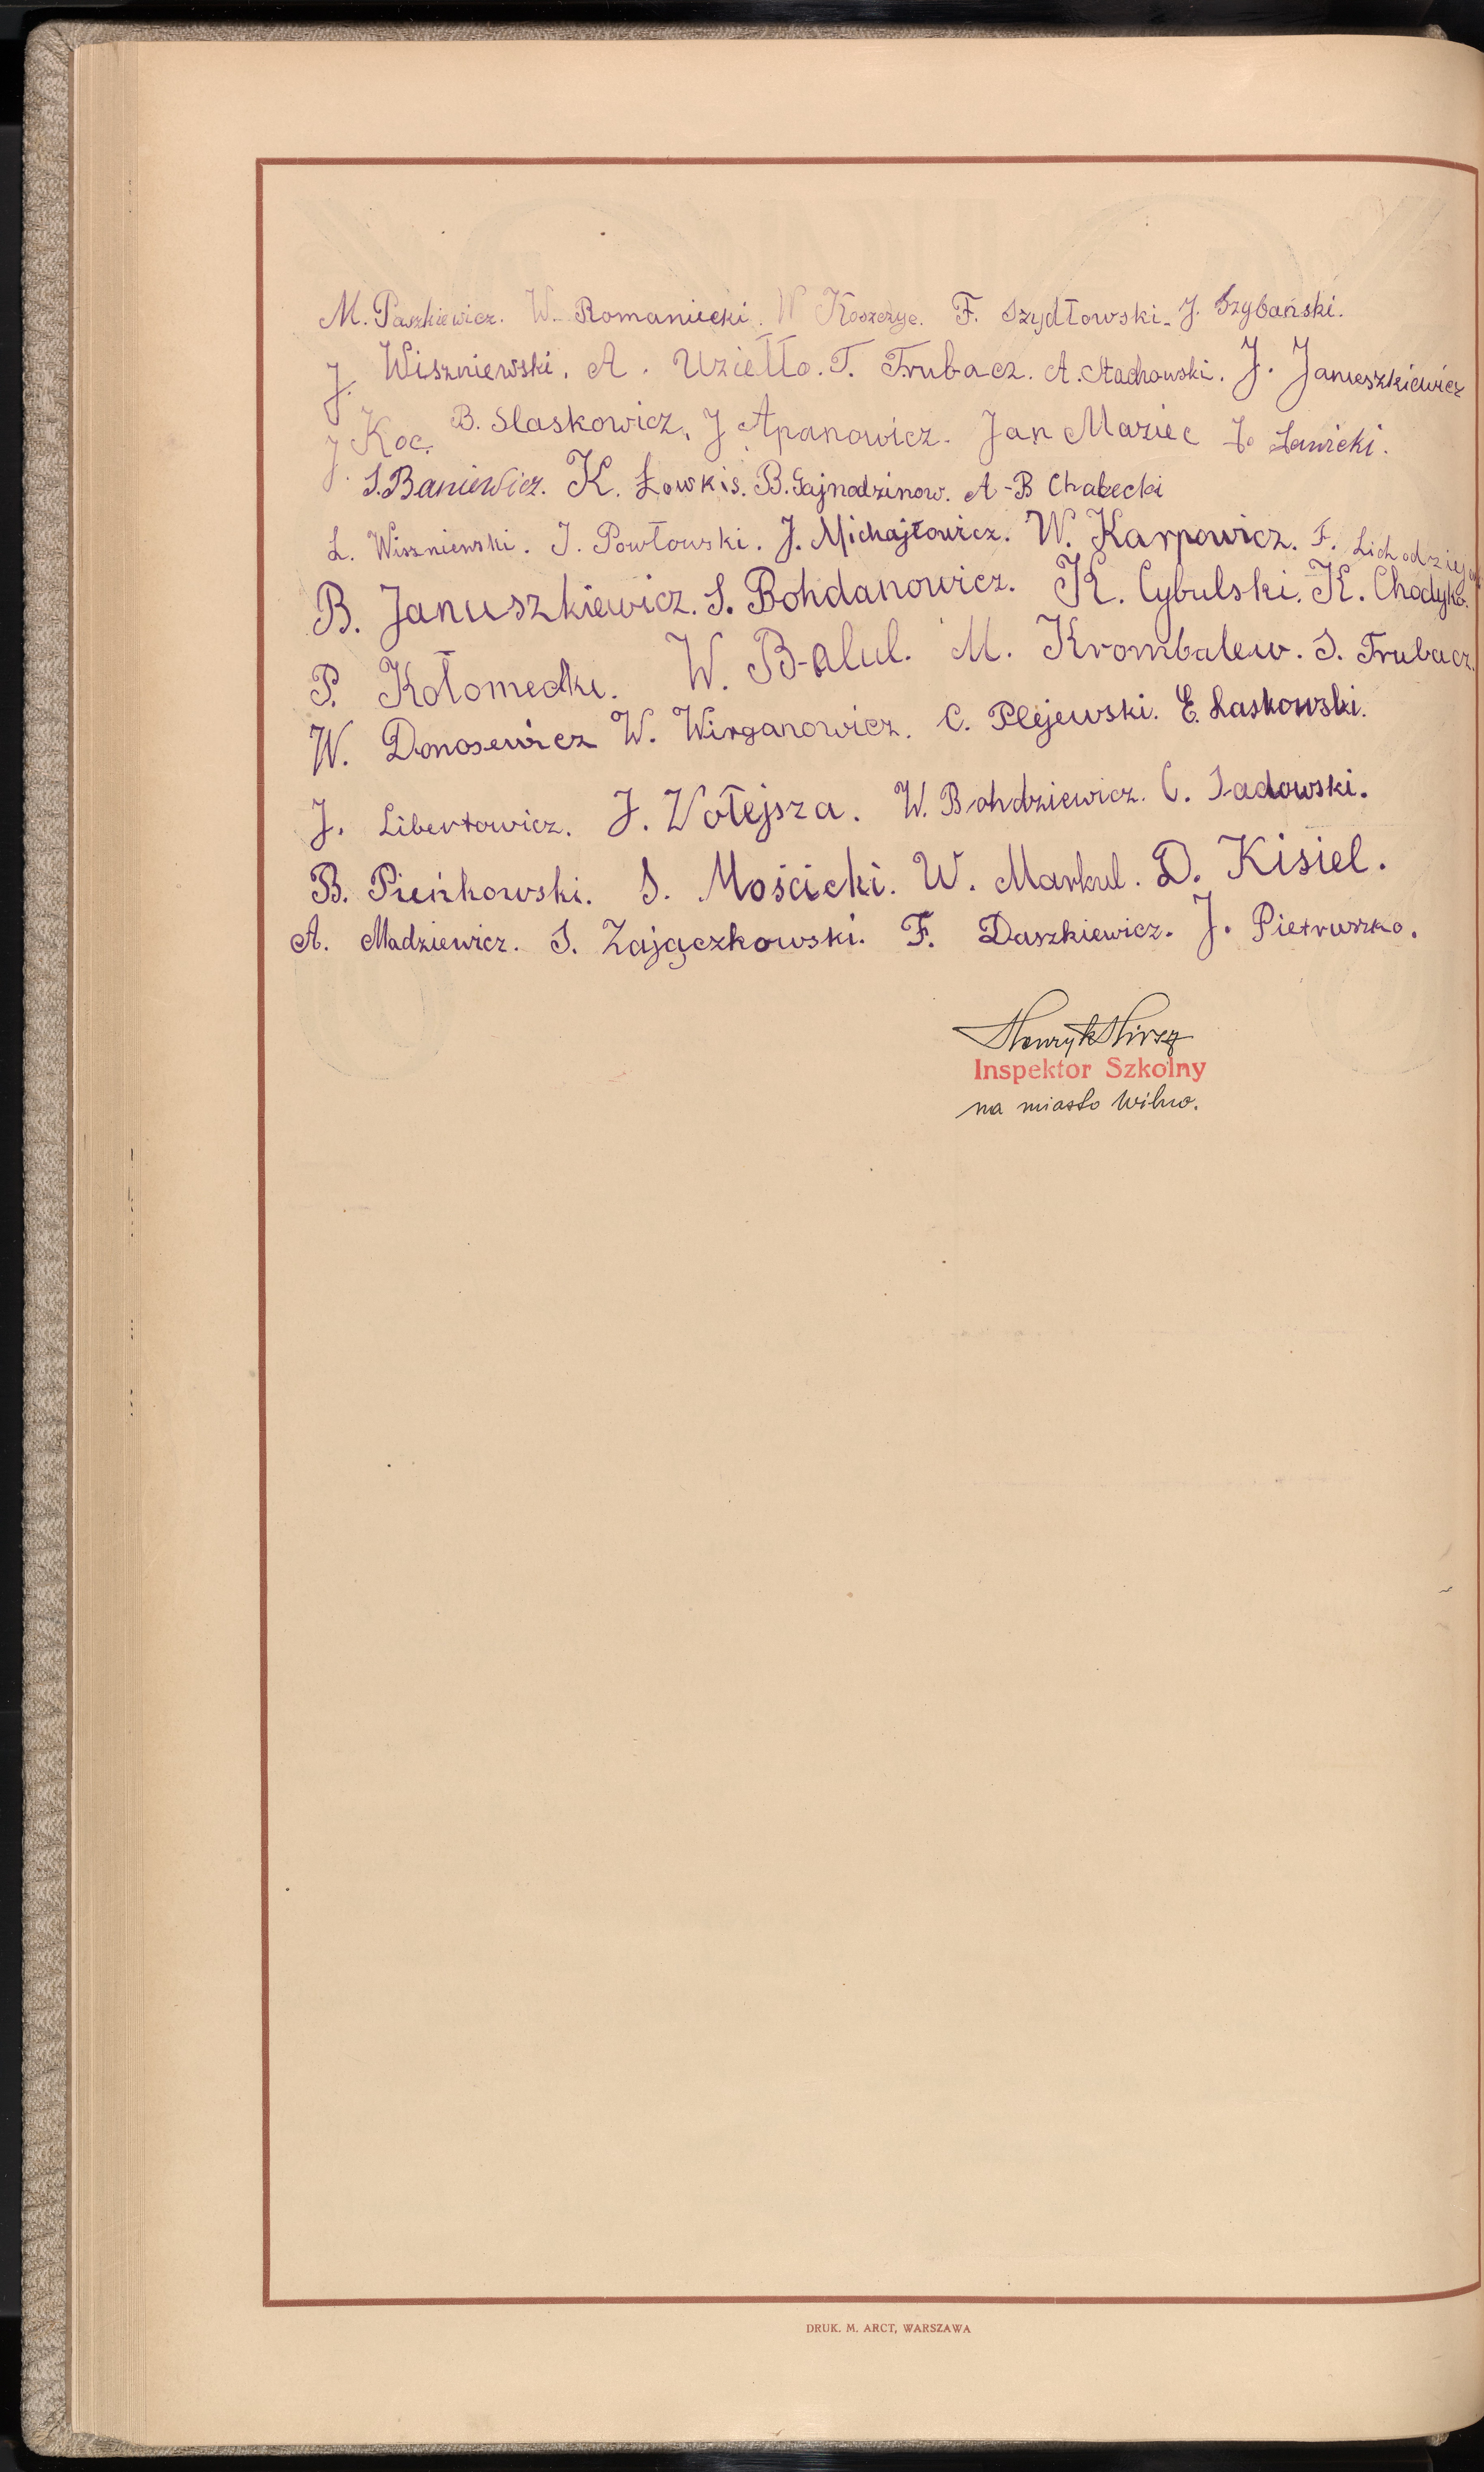 M. Paszkiewicz. W. Romaniecki. W Koszczyc. F. Szydłowski. J. Szybański.
J. Wiszniewski. A. Uziełło. T. Trubacz. A. Stachowski. J. Januszkiewicz
J. Koc. B. Slaskowicz. J Apanowicz. Jan Maziec J. Ławicki.
S. Baniewicz. K. Łowkis. B. Gajnodzinow. A-B Chabecki
L. Wiszniewski. J. Powłowski. J. Michajłowicz. W. Karpowicz. F.
B. Januszkiewicz. S. Bohdanowicz. K. Cybulski. K. Chodyko.
P. Kołomecki. W. Balul. M. Krombalew. S. Trubacz.
W. Donosewicz W. Wirganowicz. C. Plejewski. E. Laskowski.
J. Libertowicz. J. Wołejsza. W. Bohdziewicz. C. Sadowski.
B. Pieńkowski. S. Mościcki. W. Markul. D. Kisiel.
A. Madziewicz. S. Zajączkowski. F. Daszkiewicz. J. Pietruszko.
Henryk
Inspektor Szkolny
na miasto Wilno.
DRUK. M. ARCT, WARSZAWA